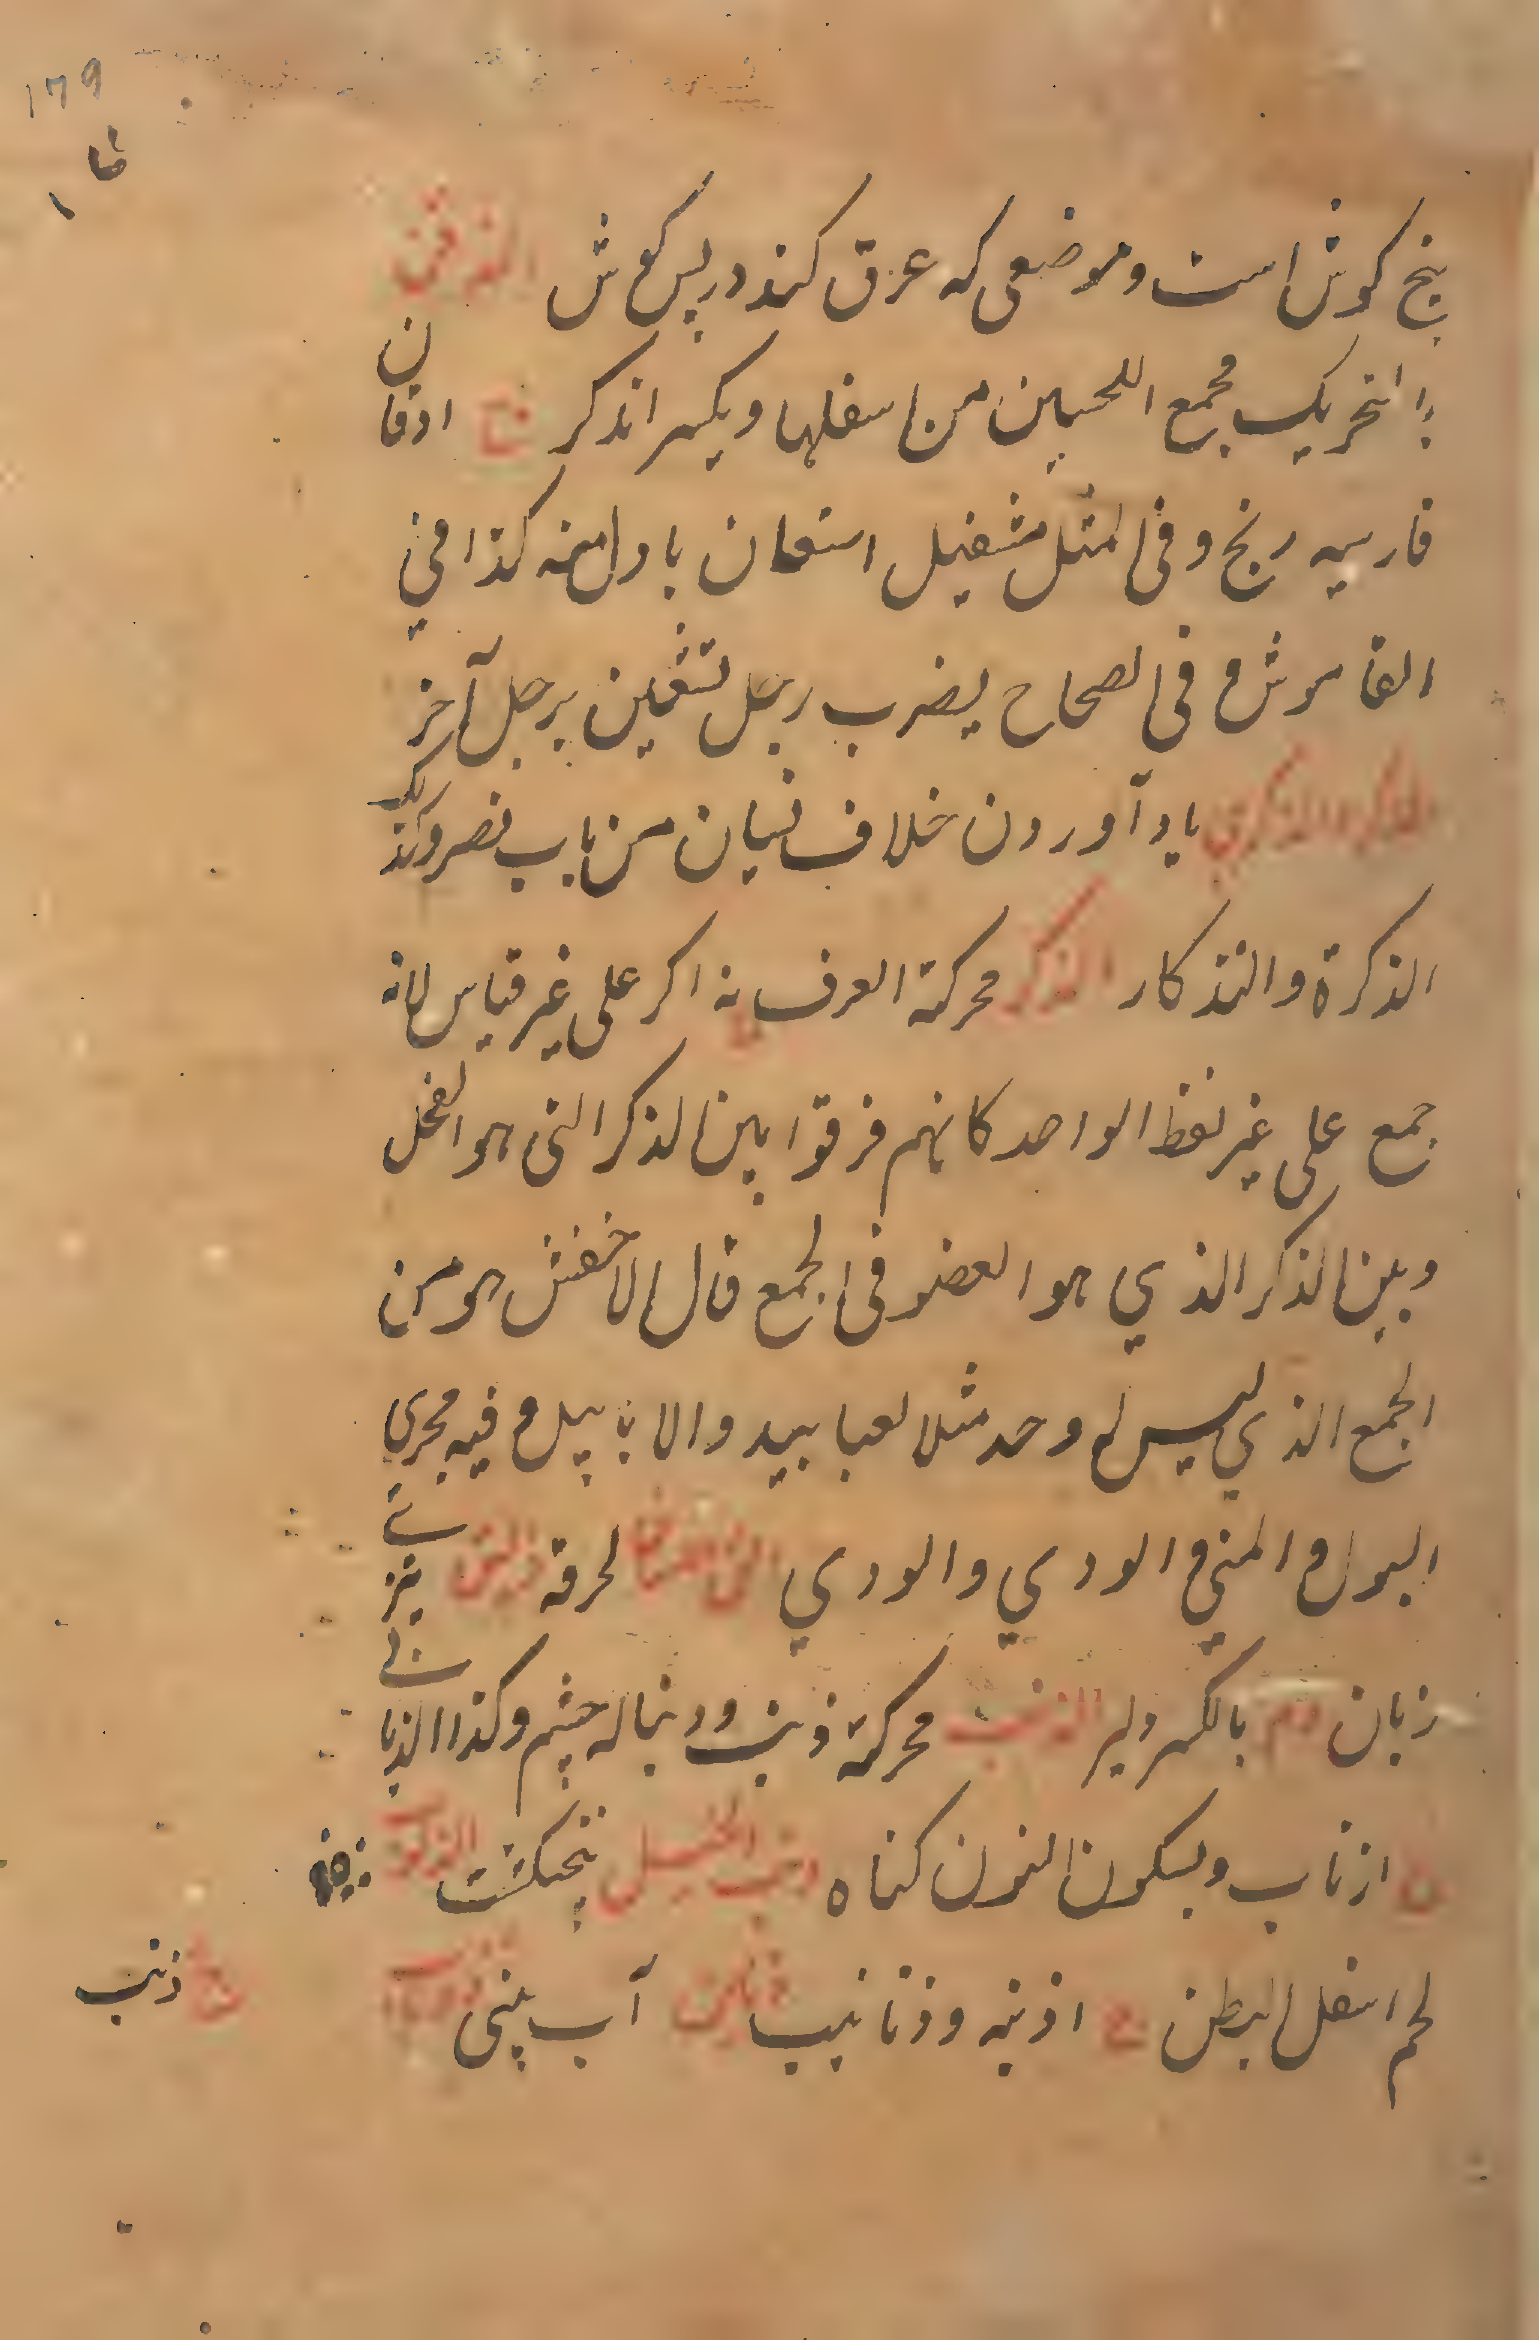 ۱۷۹
بیخ کوش است وموضعی که عرق کند درپس کوش الذقن
بالتحریک مجمع اللحیین من اسفلها ویکسر اذکر ج اذقان
فارسیه رنج وفی المثل مثقیل استعان باول منه کذا فی
القاموش و فی الصحاح یضرب رجل تستعین برجل آخر
الذکر والذکری یاد آوردن خلاف نسیان من باب نصر وکذلک
الذکرة والتذکار الذکر محرکة العرف مذاکر علی غیر قیاس لانه
جمع علی غیر لفظ الواحد کانهم فرقوا بین الذکر الذی هو الفحل
وبین الذکر الذی هو العضو فی الجمع قال الاخفش هو من
الجمع الذی لیس له وحد مثل العبابید والابابیل وفیه مجری
البول والمنی والودی والودی لحرقه تیزی
زبان بالکسر دلیر الذنب محرکة ذنب ودنباله چشم وکذا الذنابی
ج اذناب وبسکون النون کناه ذنب الخیل پنجنکشت الذنوب
لحم اسفل البطن ج اذنبه وذنائب آب بینی
ج ذنب